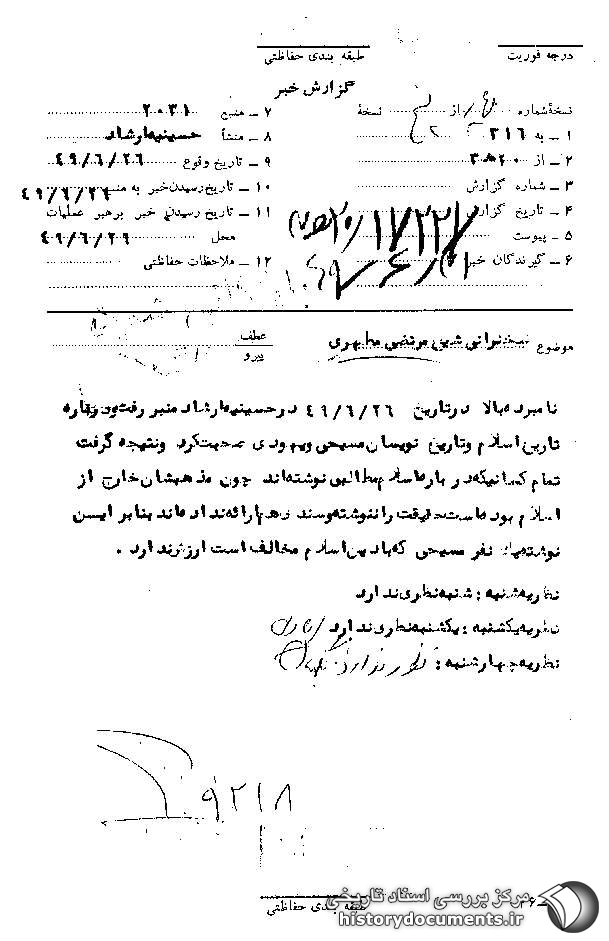 درجه فوریت
طبقه بندی حفاظتی
گزارش خبر
نسخهٔ شماره از نسخهٔ
۱ – به ۳۱۶
۲ – از ۲۰ ه ۳
۳ – شماره گزارش
۴ – تاریخ گزارش
۵ – پیوست
۶ – گیرندگان خبر
۷ – منبع ۲۰۳۱
۸ – منشأ حسینیه ارشاد
۹ – تاریخ وقوع ۴۹/۶/۲۶
۱۰ – تاریخ رسیدن خبر به منبع ۴۹/۶/۲۶
۱۱ – تاریخ رسیدن خبر برهبر عملیات
محل ۴۹/۶/۲۹
۱۲ – ملاحظات حفاظتی
موضوع سخنرانی شیخ مرتضی مطهری
عطف
پیرو
نامبرده بالا در تاریخ ۴۹/۶/۲۶ در حسینیه ارشاد منبر رفت و درباره
تاریخ اسلام و تاریخ نویسان مسیحی و یهودی صحبت کرد و نتیجه گرفت
تمام کسانیکه در باره اسلام مطالبی نوشته اند چون مذهبشان خارج از
اسلام بوده است حقیقت را ننوشته و سند هم ارائه نداده اند بنابر ایسن
نوشته نفر مسیحی که با دین اسلام مخالف است ارزش ندارد .
نظریه شنبه : شنبه نظری ندارد
نظریه یکشنبه : یکشنبه نظری ندارد
نظریه چهارشنبه : نظری ندارد
۹۲۱۸
طبقه بندی حفاظتی
مرکز بررسی اسناد تاریخی
historydocuments.ir